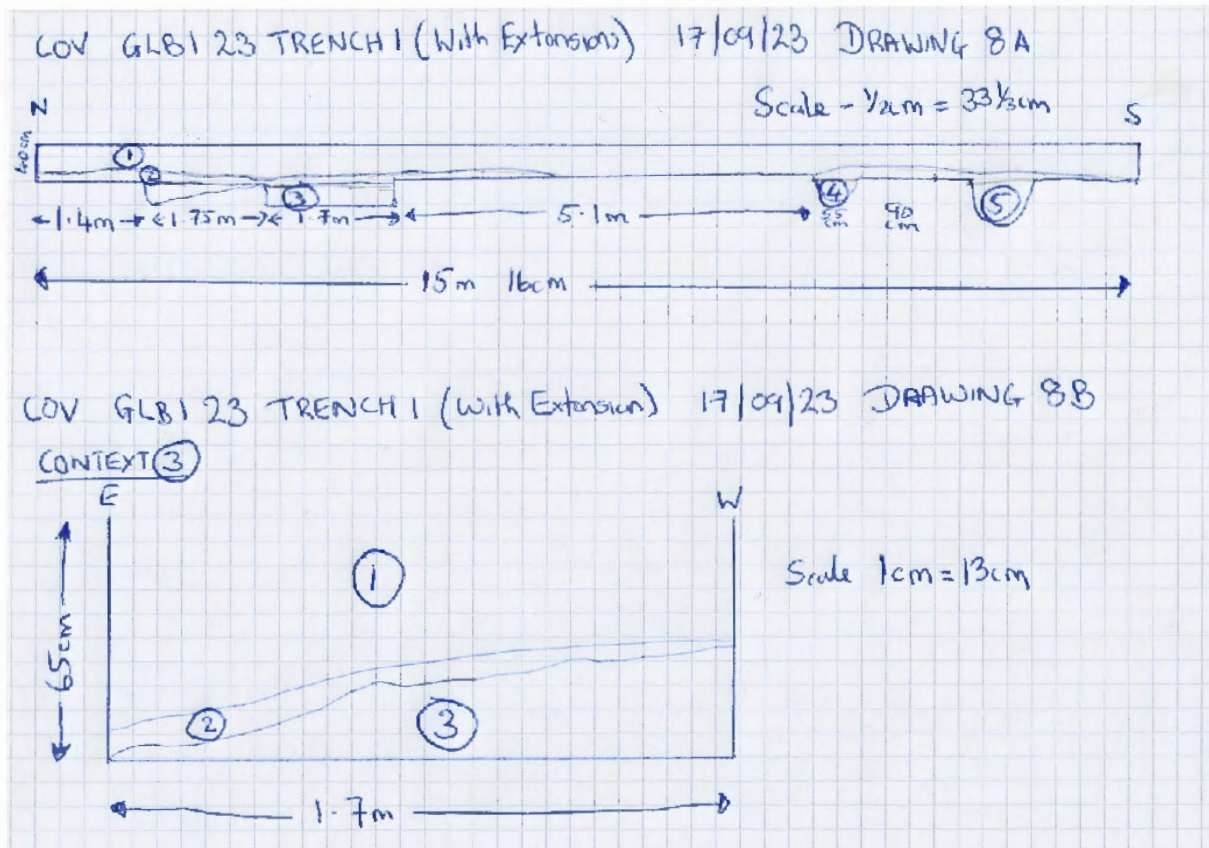 COV GLB1 23 TRENCH 1 (With Extensions) 17/09/23 DRAWING 8A
Scale - 1/2cm = 33 1/3cm
N
S
40cm
1
2
3
4
5
1.4m 1.75m 1.7m 5.1m 55cm 90cm
15m 16cm
COV GLB1 23 TRENCH 1 (With Extension) 17/09/23 DRAWING 8B
CONTEXT 3
E
W
1
Scale 1cm = 13cm
65cm
2
3
1.7m